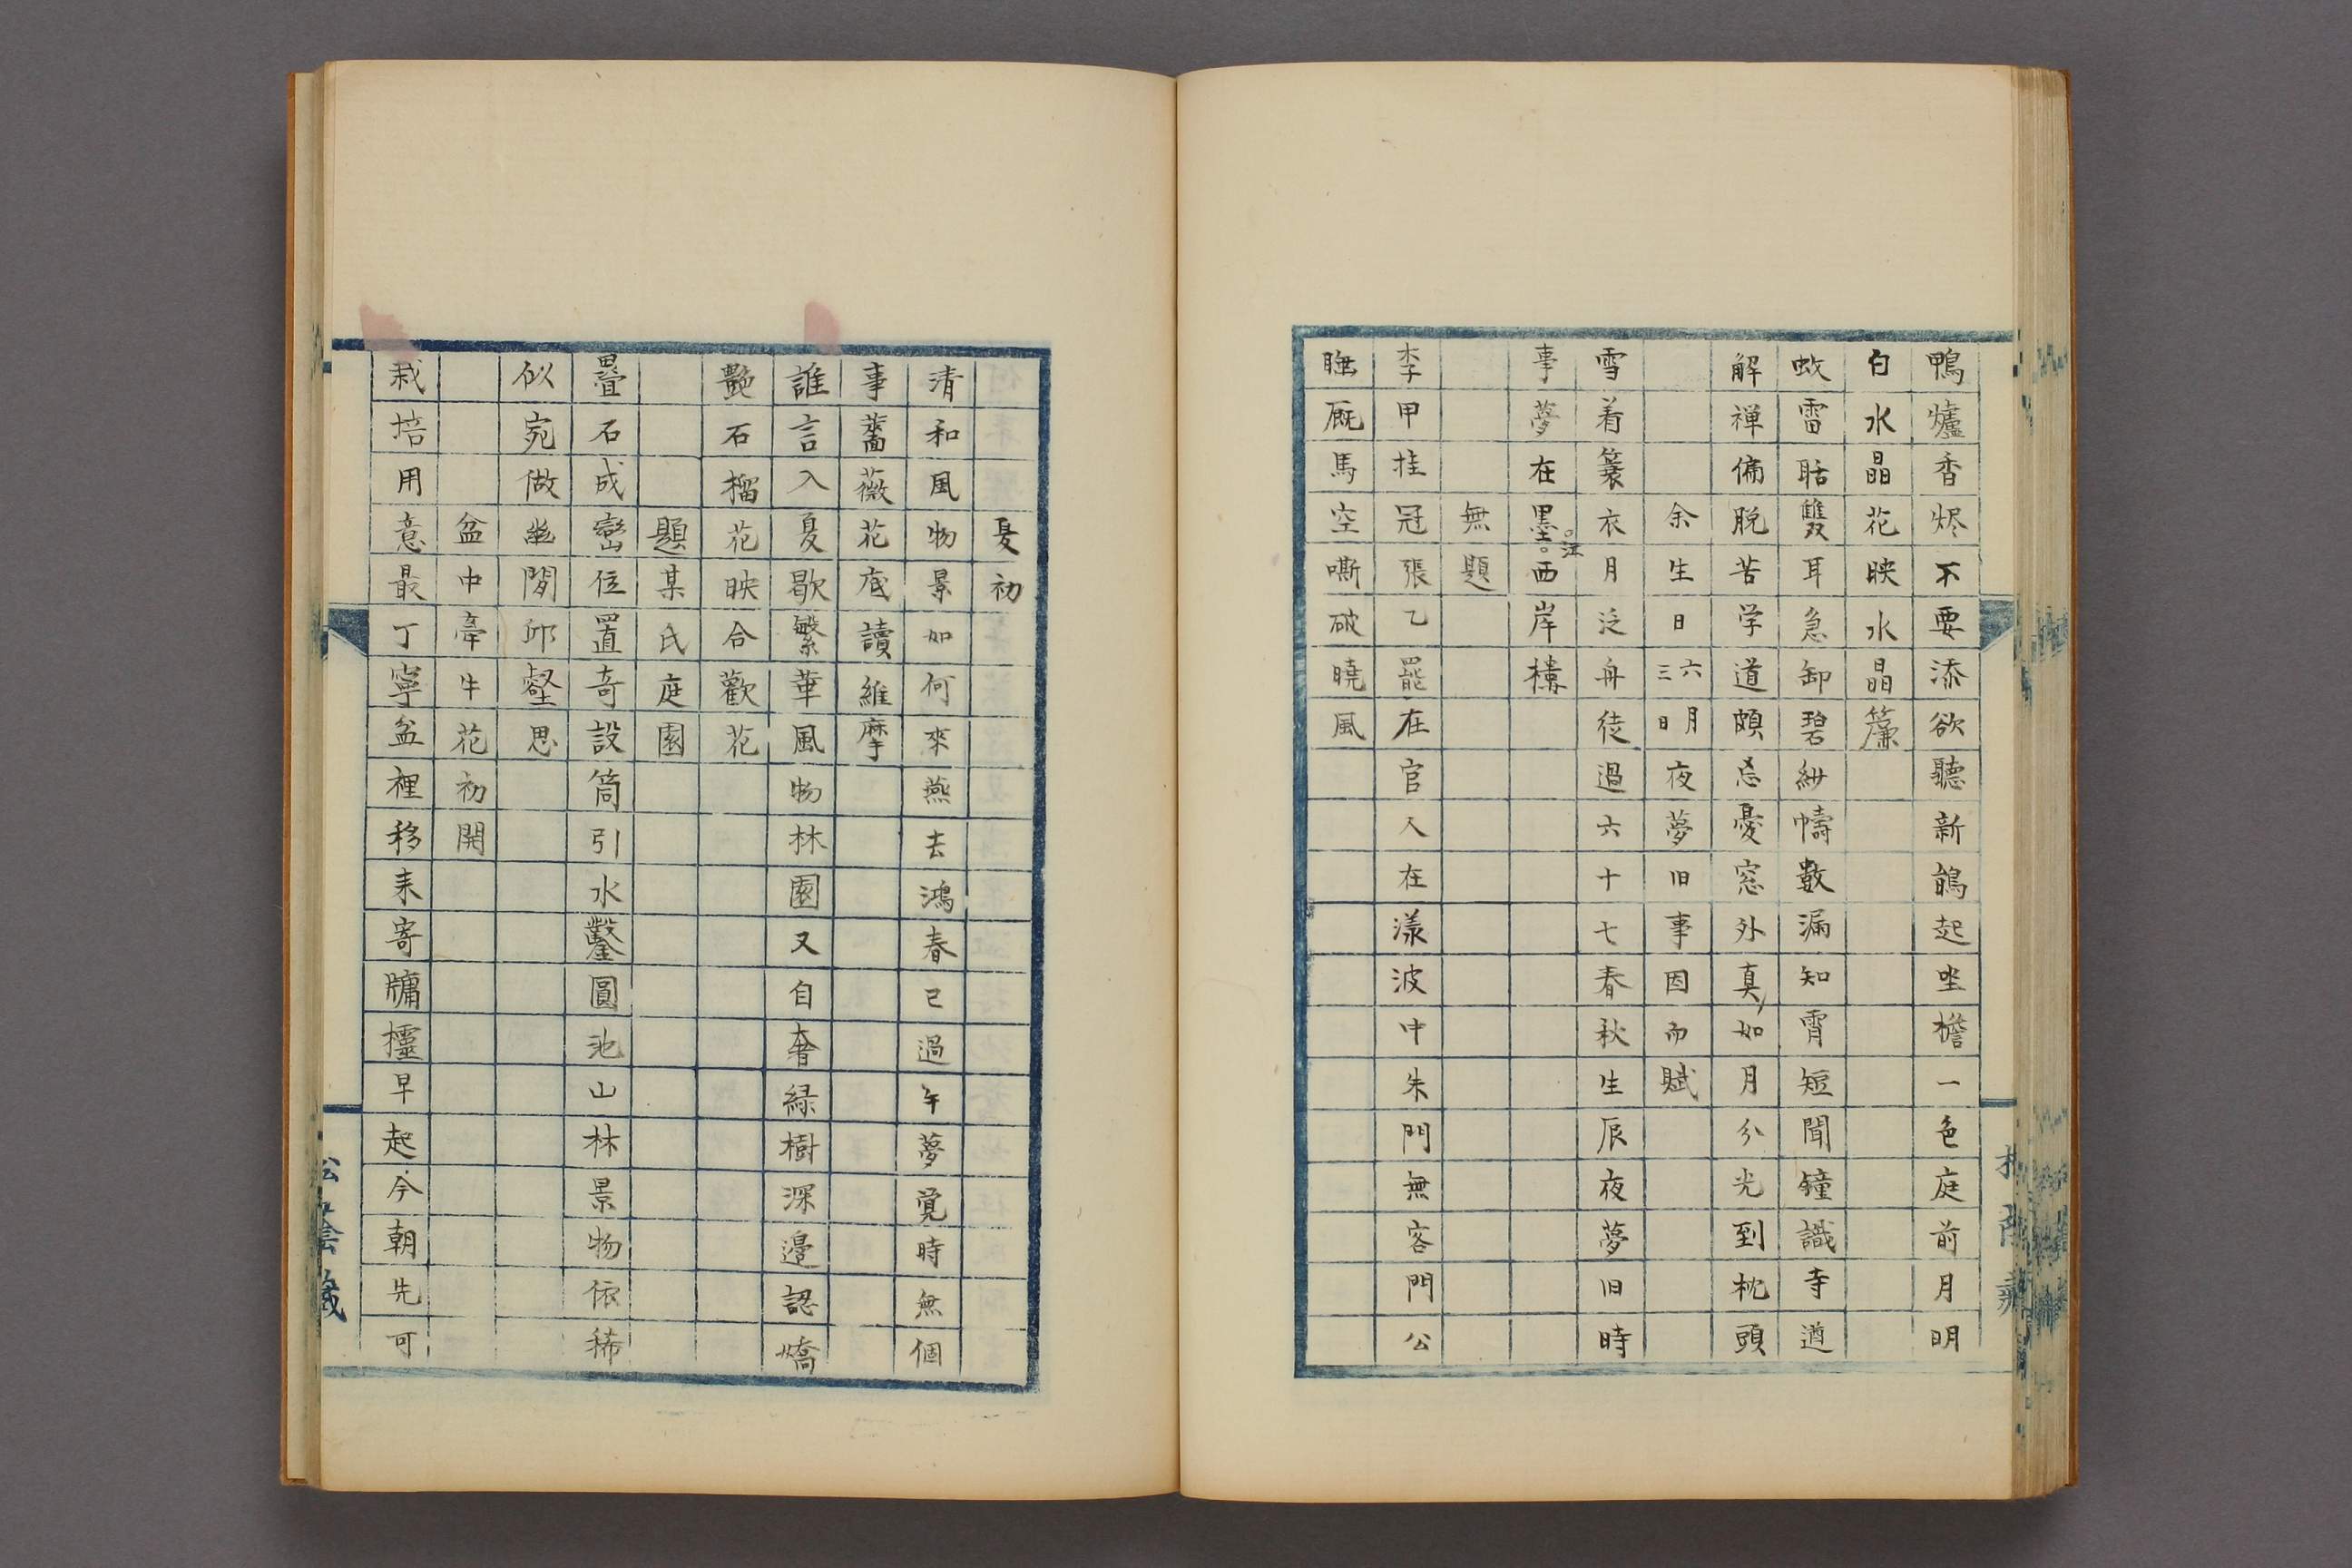 鴨爐香烬不要添欲聽新鵑起坐檐一色庭前月明
白水晶花映水晶簾
蚊雷聒雙耳急卸碧紗幬數漏知宵短聞鐘識寺遒
解禅偏脱苦学道頗忘憂窓外真如月分光到枕頭
余生日六月三日夜夢旧事因而賦
雪着簔衣月泛舟徒過六十七春秋生辰夜夢旧時
事夢在墨江西岸樓
無題
李甲挂冠張乙罷在官人在漾波中朱門無客門公
睡厩馬空嘶破曉風
夏初
清和風物景如何來燕去鴻春已過午夢覚時無個
事薔薇花底讀維摩
誰言入夏歇繁華風物林園又自奢緑樹深邊認嬌
艶石榴花映合歡花
題某氏庭園
疊石成巒位置奇設筒引水鑿圓池山林景物依稀
似宛做幽間邱壑思
盆中牽牛花初開
栽培用意最丁寧盆裡移来寄牗欞早起今朝先可